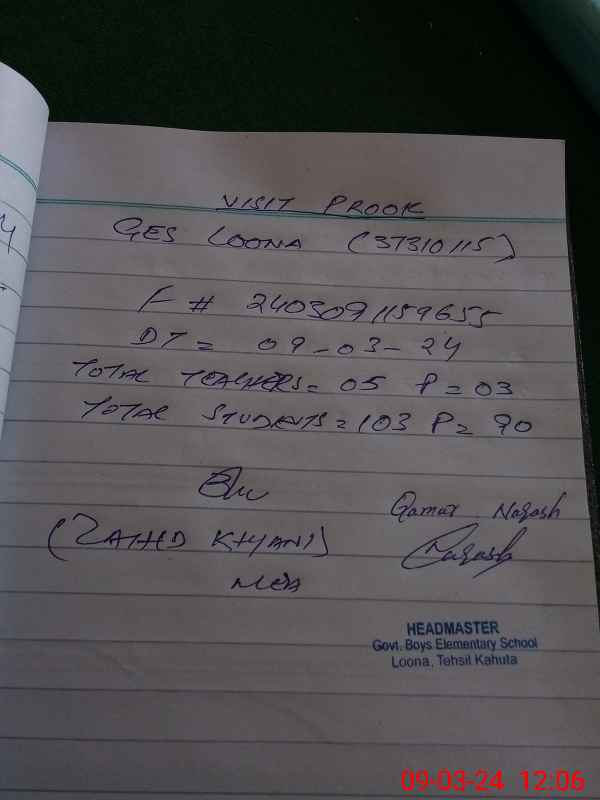 VISIT PROOF
GES LOONA (37310115)
F # 2403091159655
DT = 09-03-24
TOTAL TEACHERS = 05 P = 03
TOTAL STUDENTS = 103 P = 90
Qamar Naqash
(ZAHID KHAN)
Naqash
MEA
HEADMASTER
Govt. Boys Elementary School
Loona, Tehsil Kahuta
09-03-24 12:06